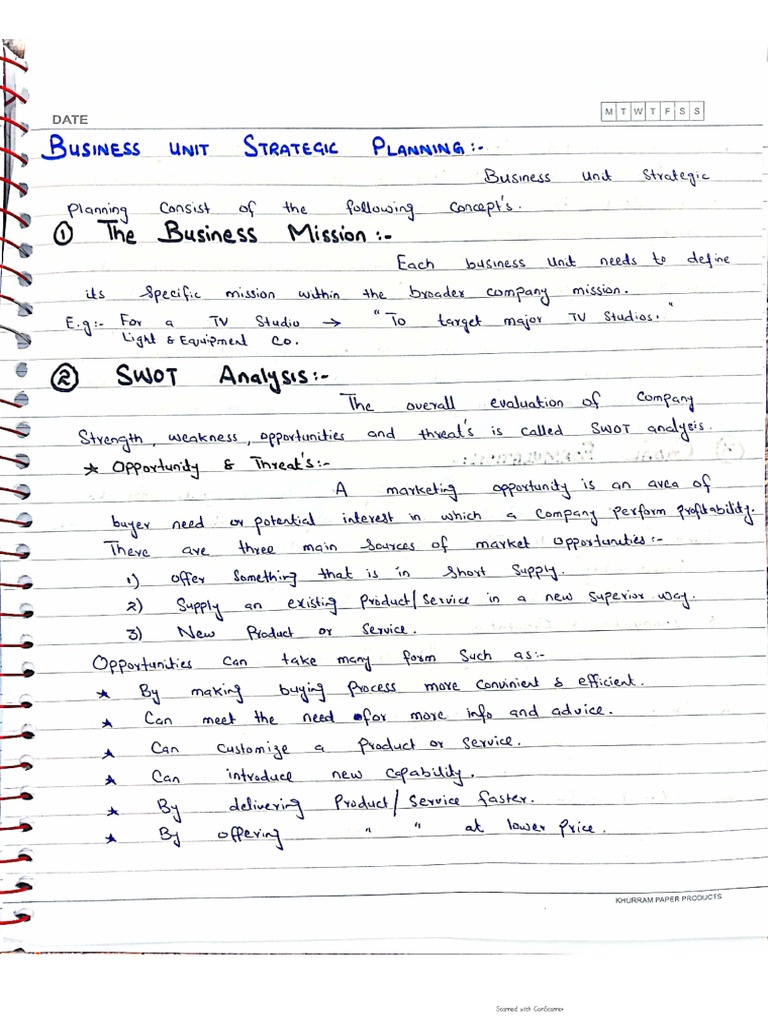 DATE
M T W T F S S
BUSINESS UNIT STRATEGIC PLANNING:-
Business Unit Strategic
Planning Consist of the following concept's.
① The Business Mission:-
Each business unit needs to define
its specific mission within the broader company mission.
E.g:- For a TV Studio → "To target major TV Studios."
Light & Equipment Co.
② SWOT Analysis:-
The overall evaluation of Company
Strength, weakness, opportunities and threat's is called SWOT analysis.
* Opportunity & Threat's:-
A marketing opportunity is an area of
buyer need or potential interest in which a company perform profitability.
There are three main sources of market opportunities:-
1) Offer something that is in short supply.
2) Supply an existing Product/Service in a new superior way.
3) New Product or Service.
Opportunities can take many form such as:-
* By making buying process more convinient & efficient.
* Can meet the need for more info and advice.
* Can customize a Product or Service.
* Can introduce new capability.
* By delivering Product/Service faster.
* By offering " " at lower price.
KHURRAM PAPER PRODUCTS
Scanned with CamScanner